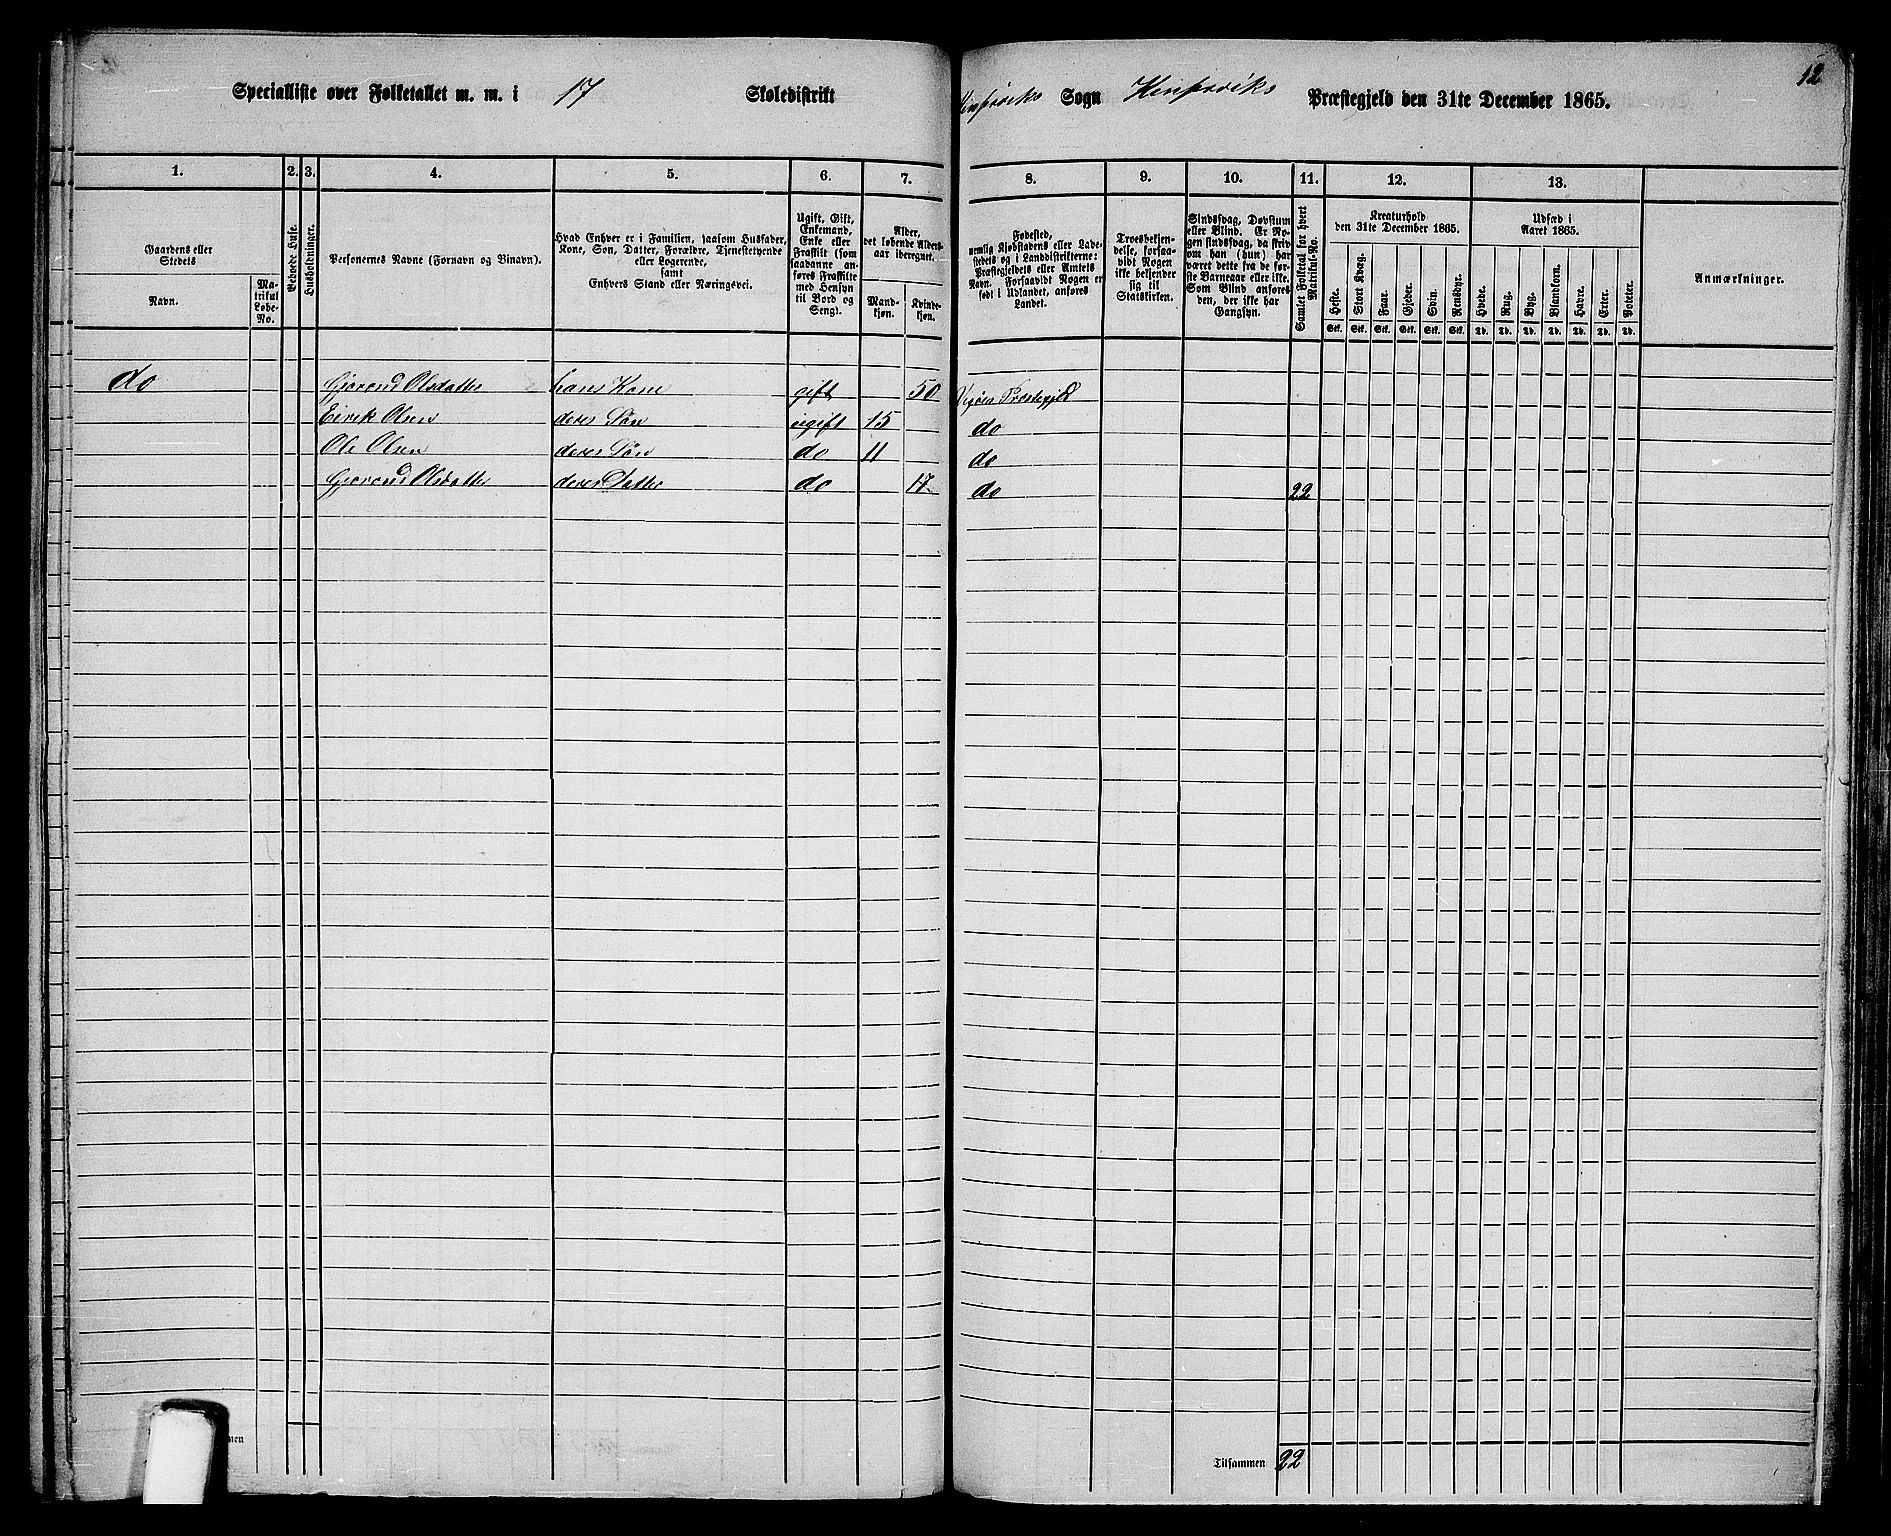 12
Specialliste over Folketallet m. m. i 17 Skoledistrikt Kinservik's Sogn Kinservik's Præstegjeld den 31te December 1865.
1. 2. 3. 4. 5. 6. 7. 8. 9. 10. 11. 12. 13.
Gaardens eller Stedets
Navn.
Matrikul Løbe-No.
Beboede Huse.
Husholdninger.
Personernes Navne (Fornavn og Binavn).
Hvad Enhver er i Familien, saasom Husfader,
Kone, Søn, Datter, Forældre, Tjenestetyende
eller Logerende,
samt
Enhvers Stand eller Næringsvei.
Ugift, Gift,
Enkemand,
Enke eller
Fraskilt (som
saadanne an-
føres Fraskilte
med Hensyn
til Bord og
Seng).
Alder,
det løbende Alders-
aar iberegnet.
Mand-
kjøn.
Kvinde-
kjøn.
Fødested,
nemlig Kjøbstadens eller Lade-
stedets og i Landdistrikterne:
Præstegjeldets eller Amtets
Navn. Forsaavidt Nogen er
født i Udlandet, anføres
Landet.
Troesbekjen-
delse, forsaa-
vidt Nogen
ikke bekjender
sig til
Statskirken.
Sindssvag, Døvstum
eller Blind. Er No-
gen sindssvag, da skriv
om han (hun) har
været dette fra de før-
ste Barneaar eller ikke.
Som Blind anføres
den, der ikke har
Gangsyn.
Samlet Folketal for hvert
Matrikul-No.
Kreaturhold
den 31te December 1865.
Heste. Stort Kvæg. Faar. Gjeder. Svin. Rensdyr.
Stk. Stk. Stk. Stk. Stk. Stk.
Udsæd i
Aaret 1865.
Hvede. Rug. Byg. Blandkorn. Havre. Erter. Poteter.
Td. Td. Td. Td. Td. Td. Td.
Anmærkninger.
do Gjørond Olsdatter hans Kone gift 50 Præstegjeld
Eirik Olsen deres Søn ugift 15 do
Ole Olsen deres Søn do 11 do
Gjørond Olsdatter deres Datter do 17 do 22
Tilsammen 22